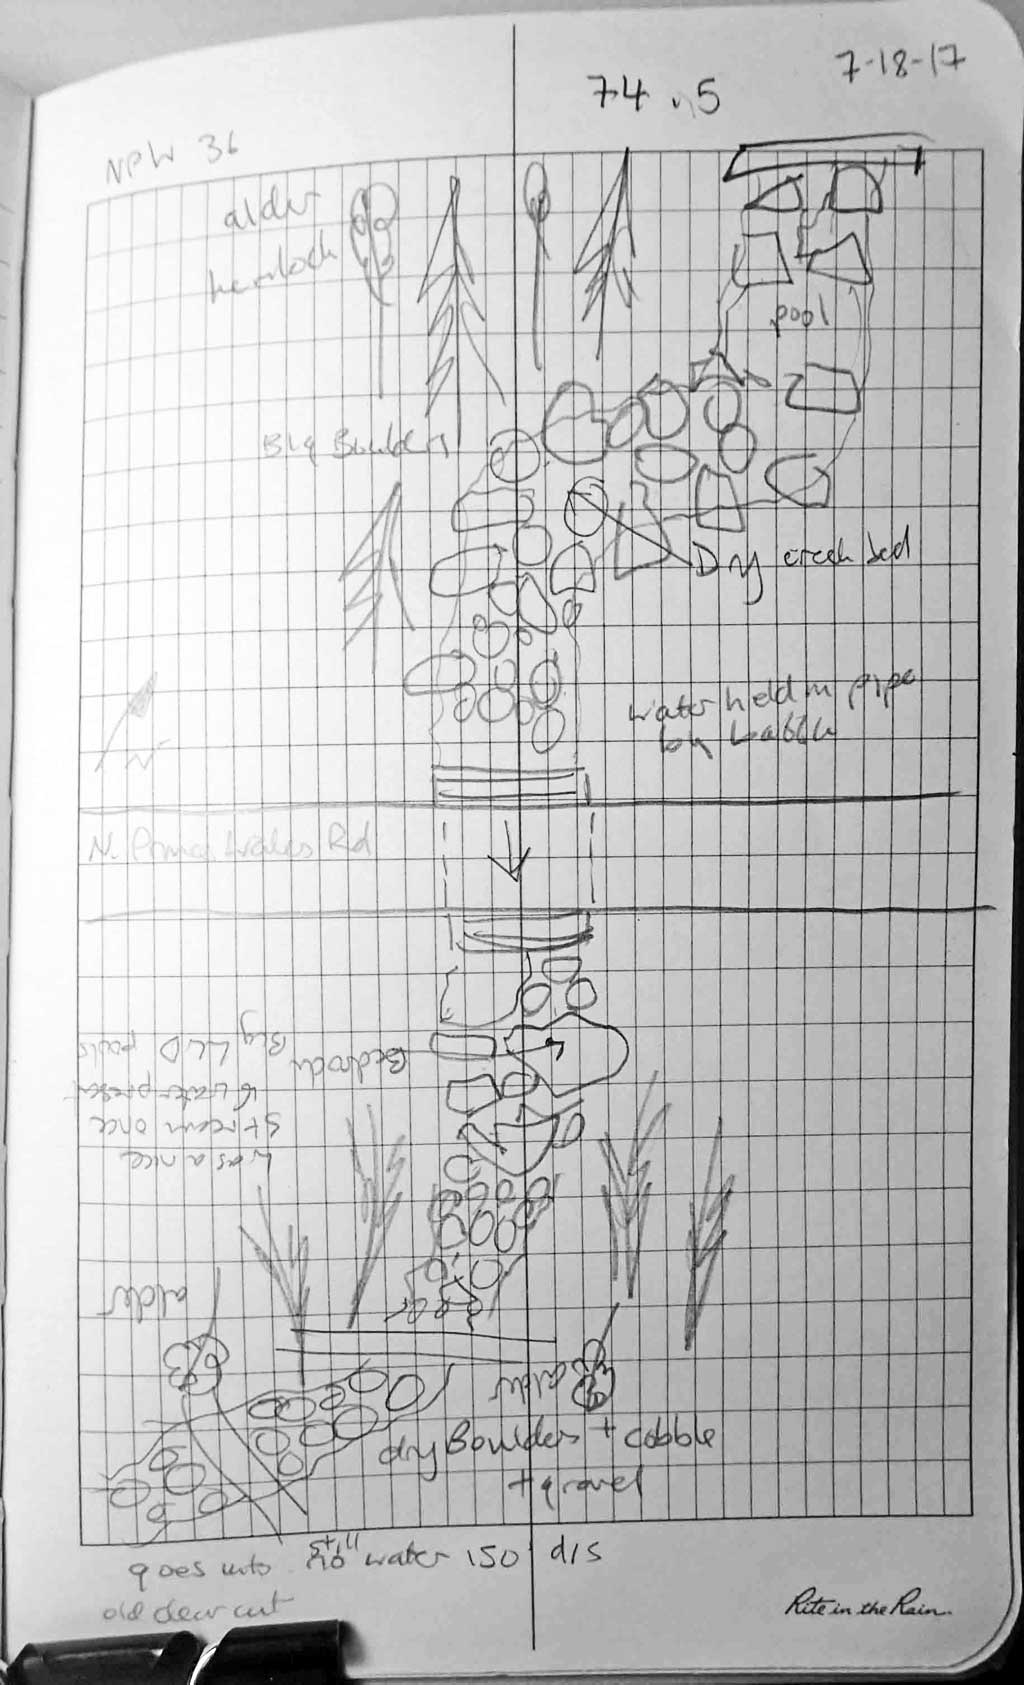 7-18-17
74.5
NPW 36
alder
hemlock
pool
Big Boulders
Dry creek bed
water held in pipe
N
Rd
Bedrock
Big LWD pools
water present
stream once
was a nice
alder
alder
dry Boulders + cobble
+ gravel
goes into still no water 150' d/s
old clear cut
Rite in the Rain.